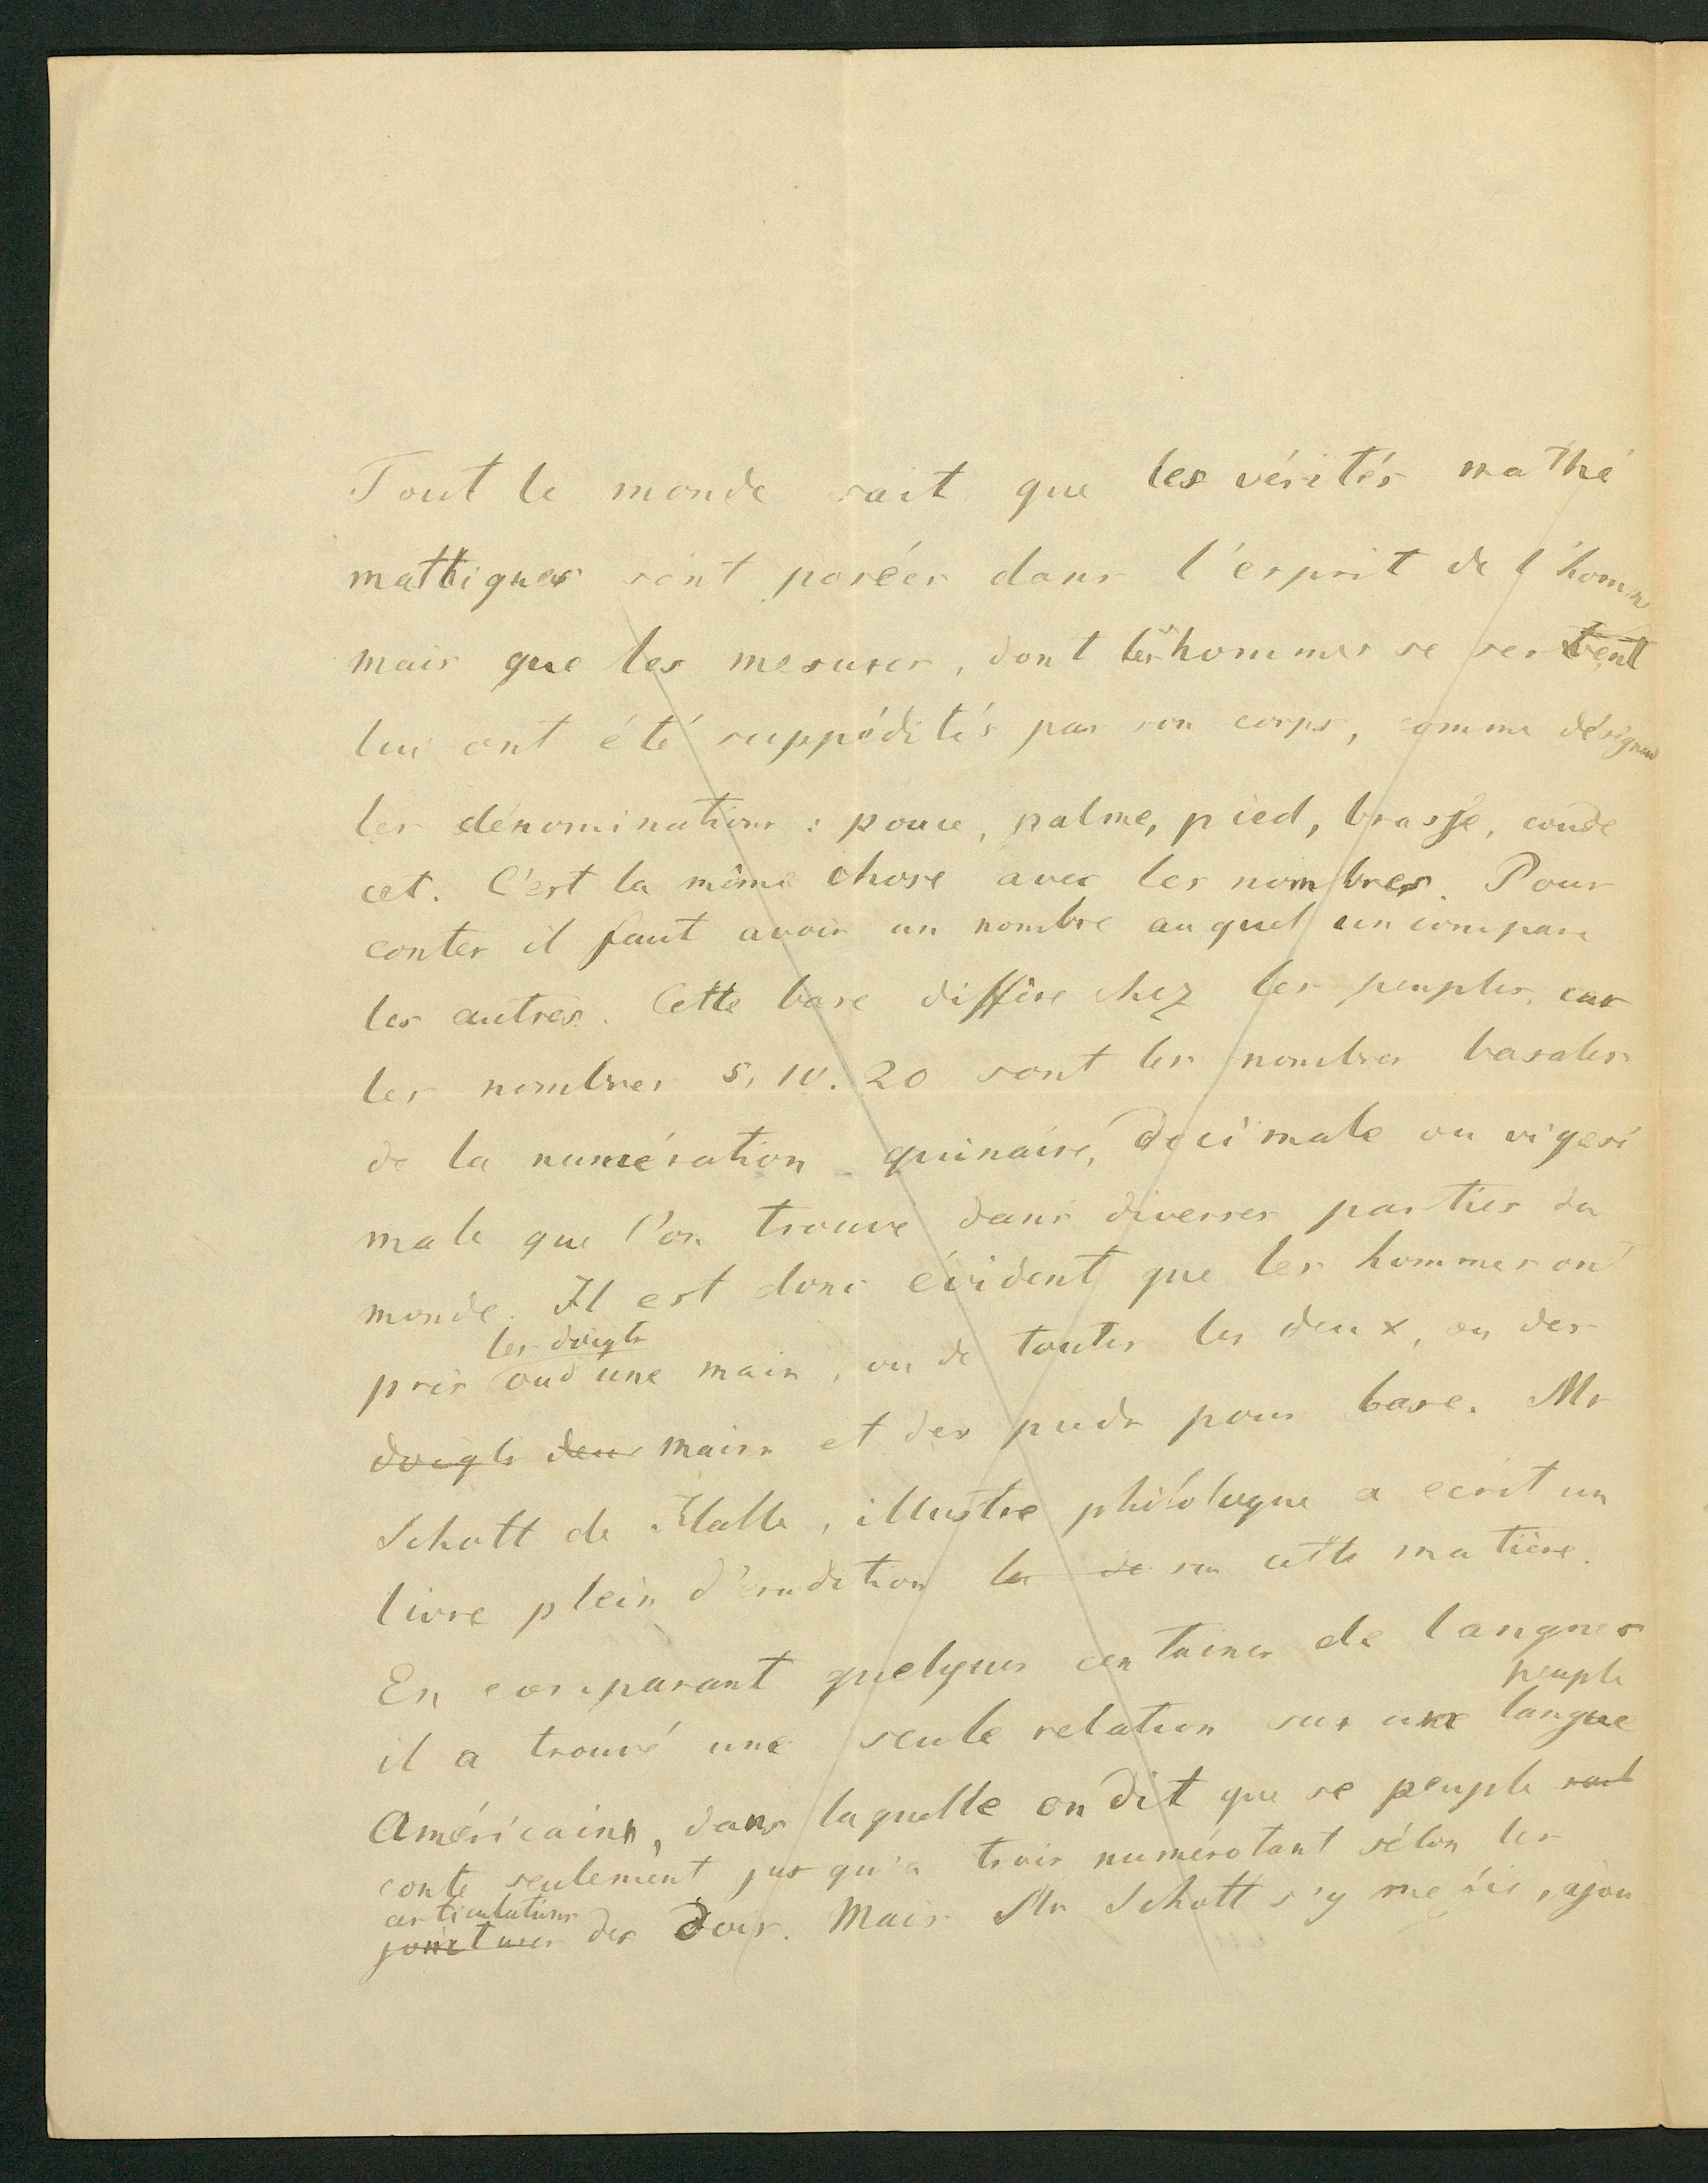 Tout le monde sait que les vérités mathé
mathiques sont posées dans l'esprit de l'homme
mais que les mesures, dont les hommes se servent
lui ont été suppédités par son corps, comme désignent
les dénominations : pouce, palme, pied, brasse, coude
cet. C'est la même chose avec les nombres. Pour
conter il faut avoir un nombre auquel un compare
les autres. Cette base diffère chez les peuples, car
les nombres 5, 10. 20 sont les nombres basales
de la numération quinaire, decimale ou vigesi
male que l'on trouve dans diverses parties du
monde. Il est donc évident que les hommes ont
les doigts
pris ou d'une main, ou de toutes les deux, ou des
doigts deux mains et des pieds pour base. Mr
Schott de Halle, illustre philologue a ecrit un
livre plein d'erudition la de sur cette matière.
En comparant quelques centaines de langues
peuple
il a trouvé une seule relation sur une langue
Américaine, dans laquelle on dit que se peuple
conte seulement jusqu'a trois numérotant sélon les
articulations
jointures des dois. Mais Mr Schott s'y mefie, ajou